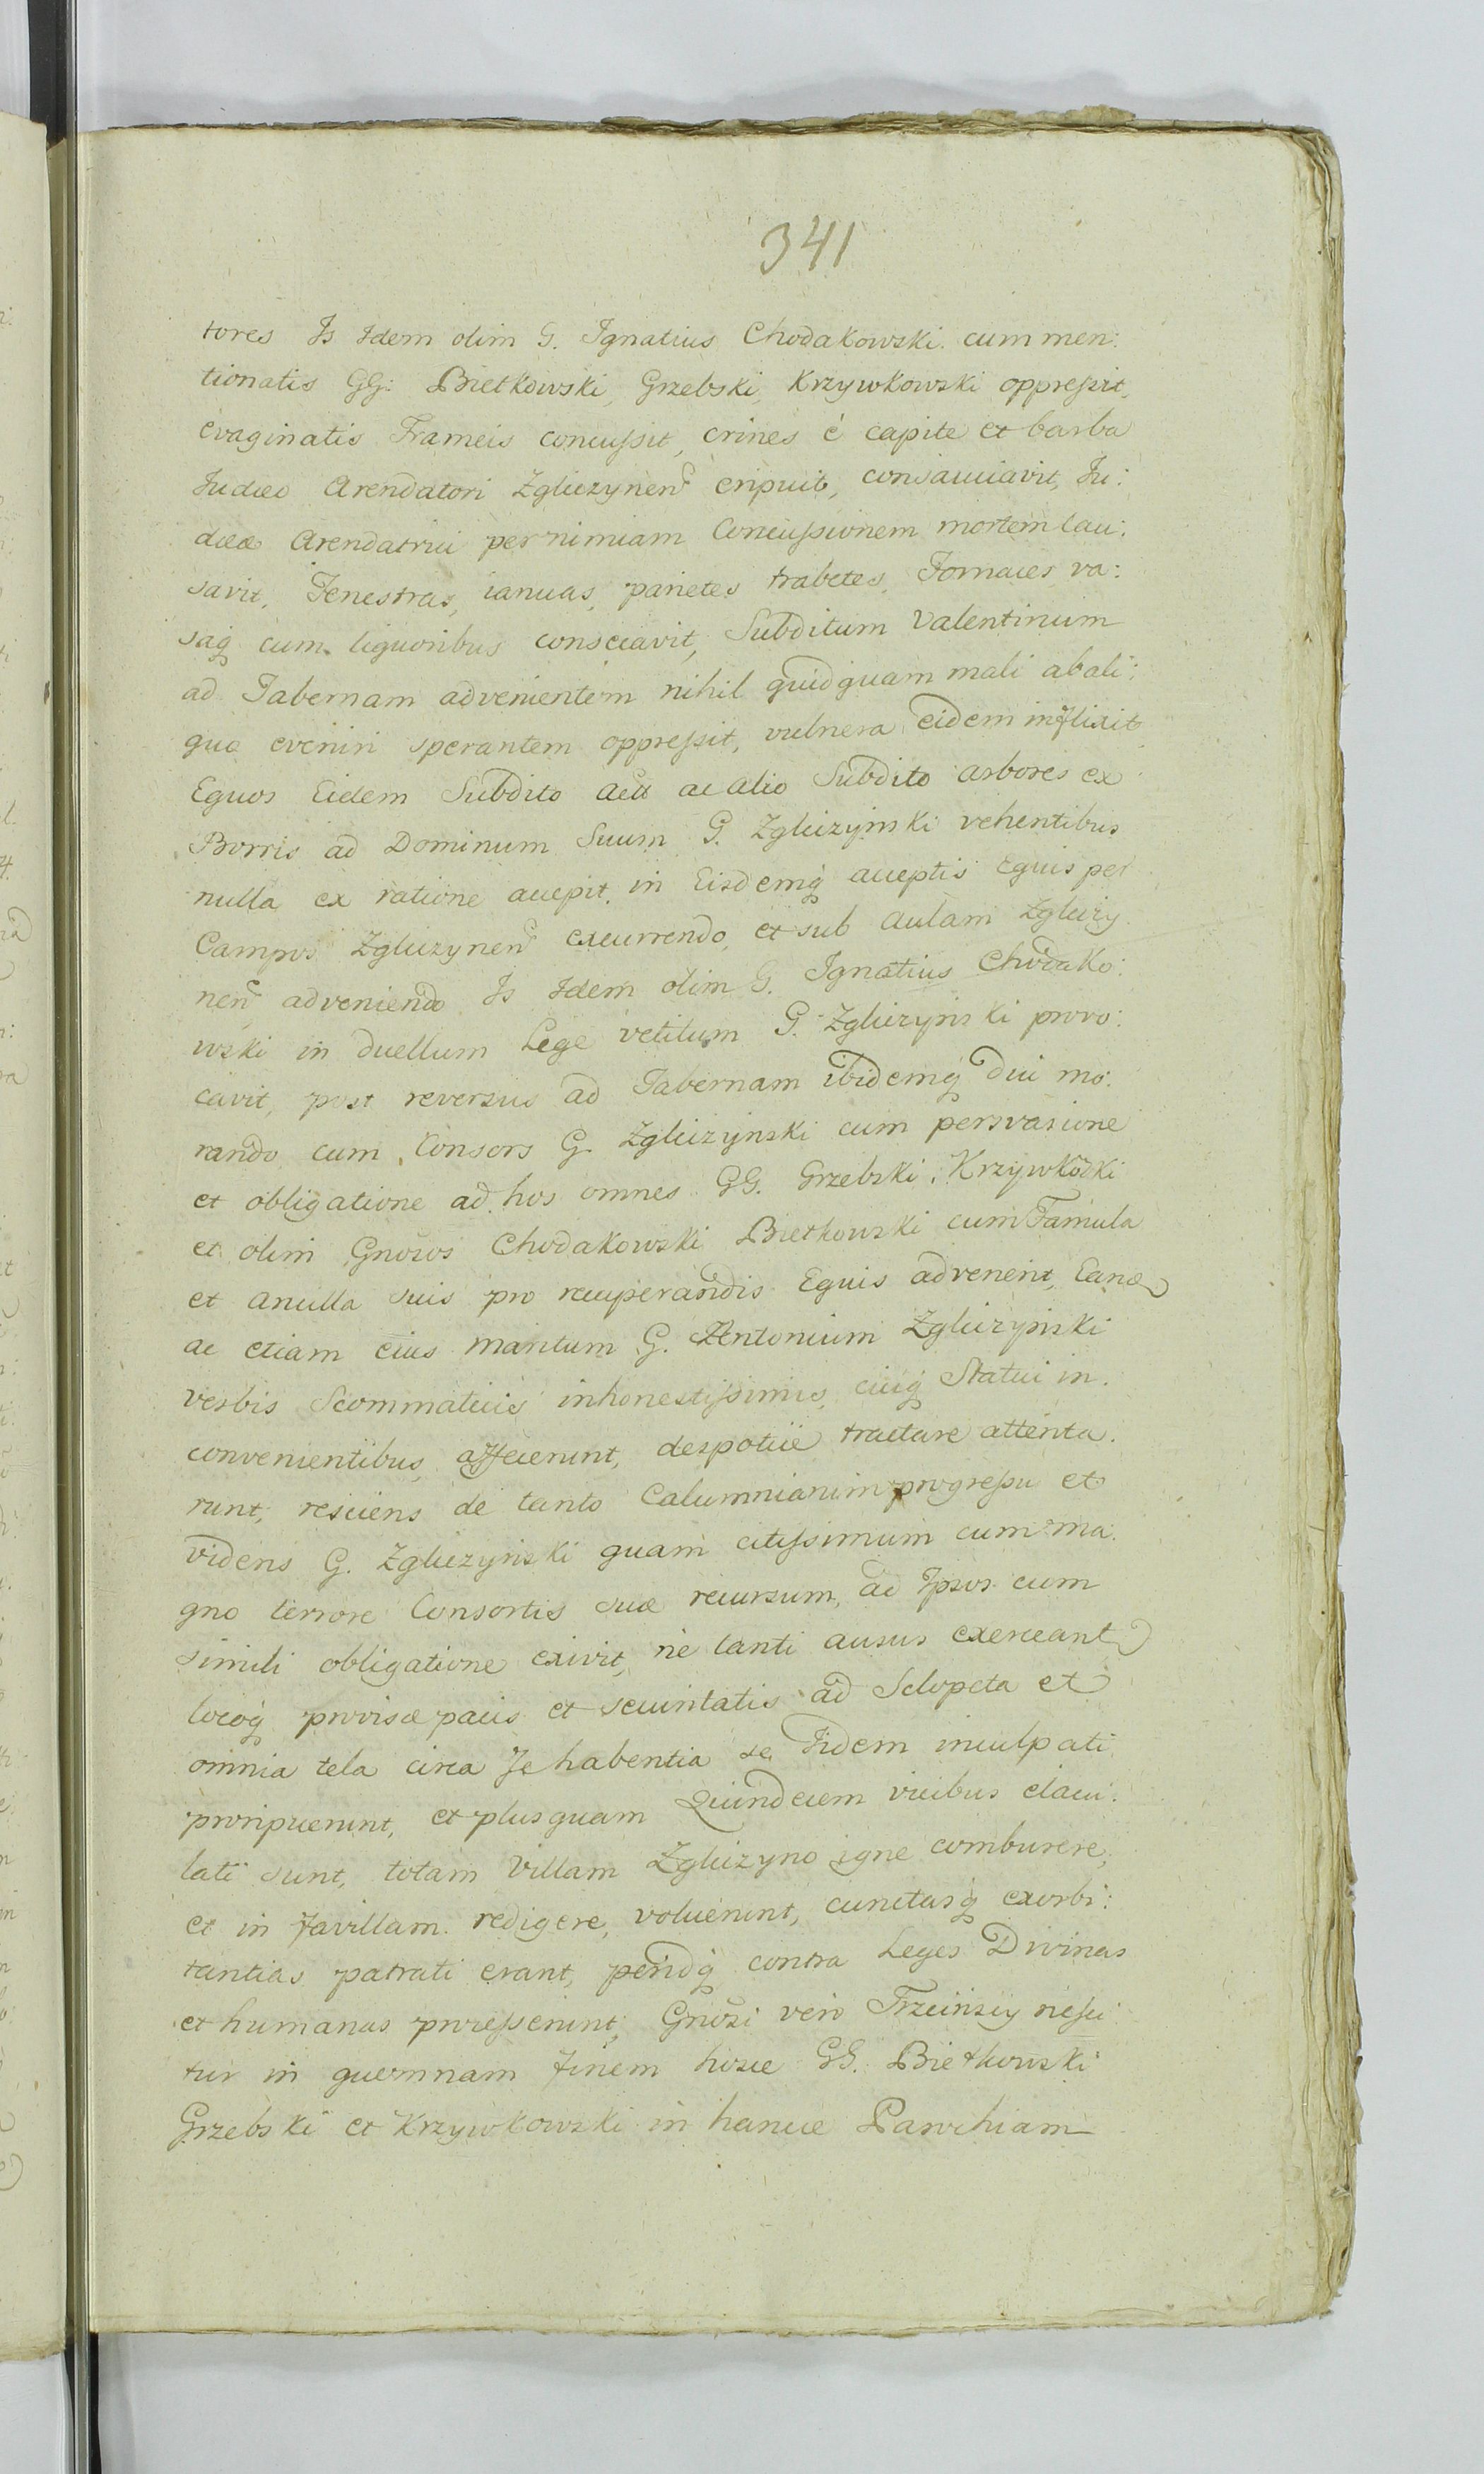 341
tores Is Idem olim G. Ignatius Chodakowski cum men:
tionatis GG: Bietkowski, Grzebski, Krzywkowski oppressit,
evaginatis Frameis concussit, crines é capite et barba
Judæo Arendatori Zgliczynen eripuit, consauciavit, Ju:
dææ Arendatrici per nimiam Concussionem mortem cau:
savit, Fenestras, ianuas, parietes trabetes, Fornaces va:
saq cum liquoribus conscecavit, Subditum Valentinum
ad Tabernam advenientem nihil quidquam mali ab ali:
quo eveniri sperantem oppressit, vulnera eidem inflixit
Equos Eidem Subdito ac alio Subdito arbores ex
Borris ad Dominum Suum G. Zgliczynski vehentibus
nulla ex ratione accepit, in Eisdemq acceptis Equis per
Campos Zgliczynen excurrendo, et sub Aulam Zgliczy
nen adveniendo Is Idem olim G. Ignatius Chodako:
wski in duellum Lege vetitum G. Zgliczynski provo:
cavit, post reversus ad Tabernam ibidemq diu mo:
rando cum Consors G. Zgliczynski cum persvasione
et obligatione ad hos omnes GG. Grzebski, Krzywkoski
et olim Gnosos Chodakowski Bietkowski cum Famula
et Ancilla suis pro recuperandis Equis advenerit, Eand
ac etiam eius Maritum G. Antonium Zgliczynski
verbis Scommaticis inhonestissimis, eiusq Statui in:
convenientibus, affecerunt, despotice tractare attenta:
runt, resciens de tanto Calumniarum progressu et
videns G. Zgliczynski quam citissimum cum ma:
gno terrore Consortis suæ recursum, ad Ipsos cum
simili obligatione exivit, ne tanti ausus exerceant
locoq provisæ pacis et securitatis ad Sclopeta et
omnia tela circa se habentia se Iidem inculpati
proripuerunt, et plusquam Quindecim vicibus eiacu:
lati sunt, totam Villam Zgliczyno igne comburere,
et in favillam redigere, voluerunt, cunctasq exorbi:
tantias patrati erant, perindq contra Leges Divinas
et humanas processerunt, Gnosi vero Trzcinscy nesci
tur in quemnam finem hosce GG. Bietkowski
Grzebski et Krzywkowski in hancce Parochiam